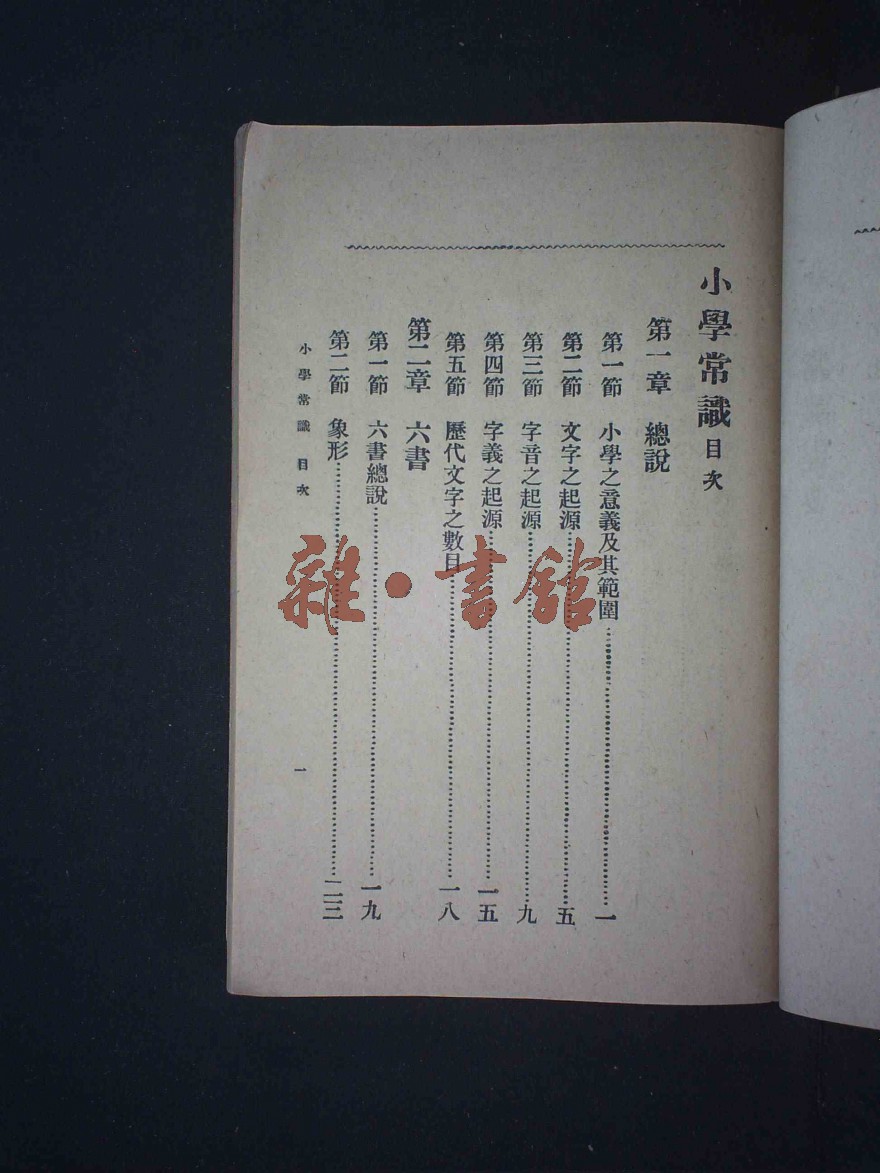 小學常識目次
第一章 總說
第一節 小學之意義及其範圍 一
第二節 文字之起源 五
第三節 字音之起源 九
第四節 字義之起源 一五
第五節 歷代文字之數目 一八
第二章 六書
第一節 六書總說 一九
第二節 象形 二三
小學常識 目次 一
雜·書館